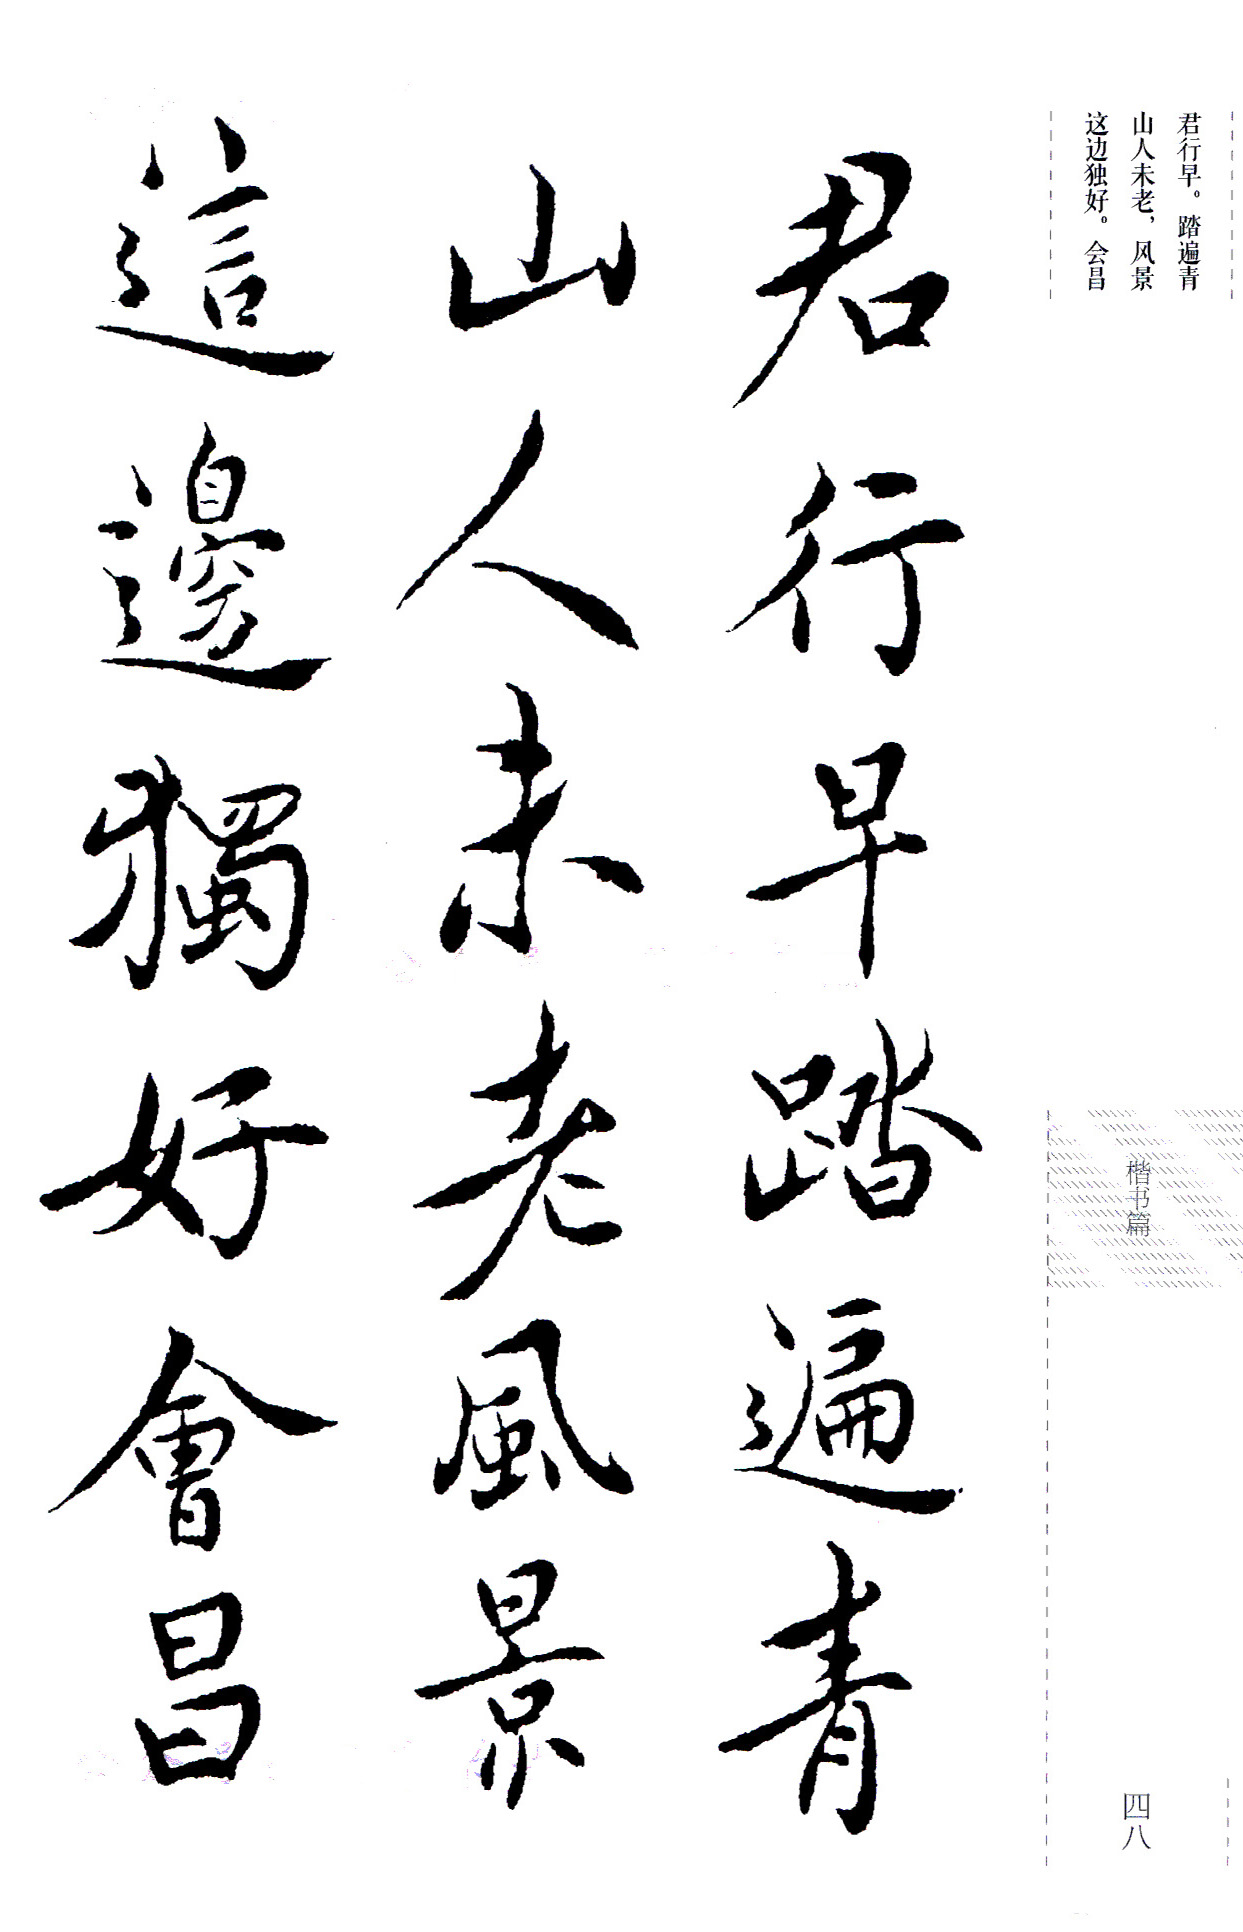 君行早。踏遍青
山人未老，风景
这边独好。会昌
楷书篇
四八
君行早踏遍青
山人未老風景
這邊獨好會昌